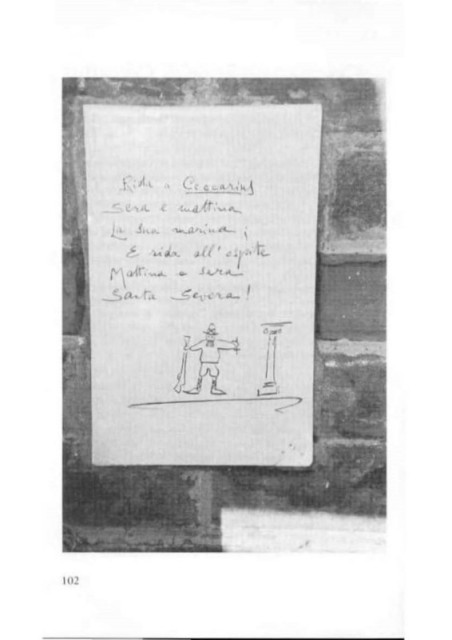 Ride a Ceccarius
Sera e mattina
La sua marina;
E rida all'ospite
Mattina e sera
Santa Severa!
102